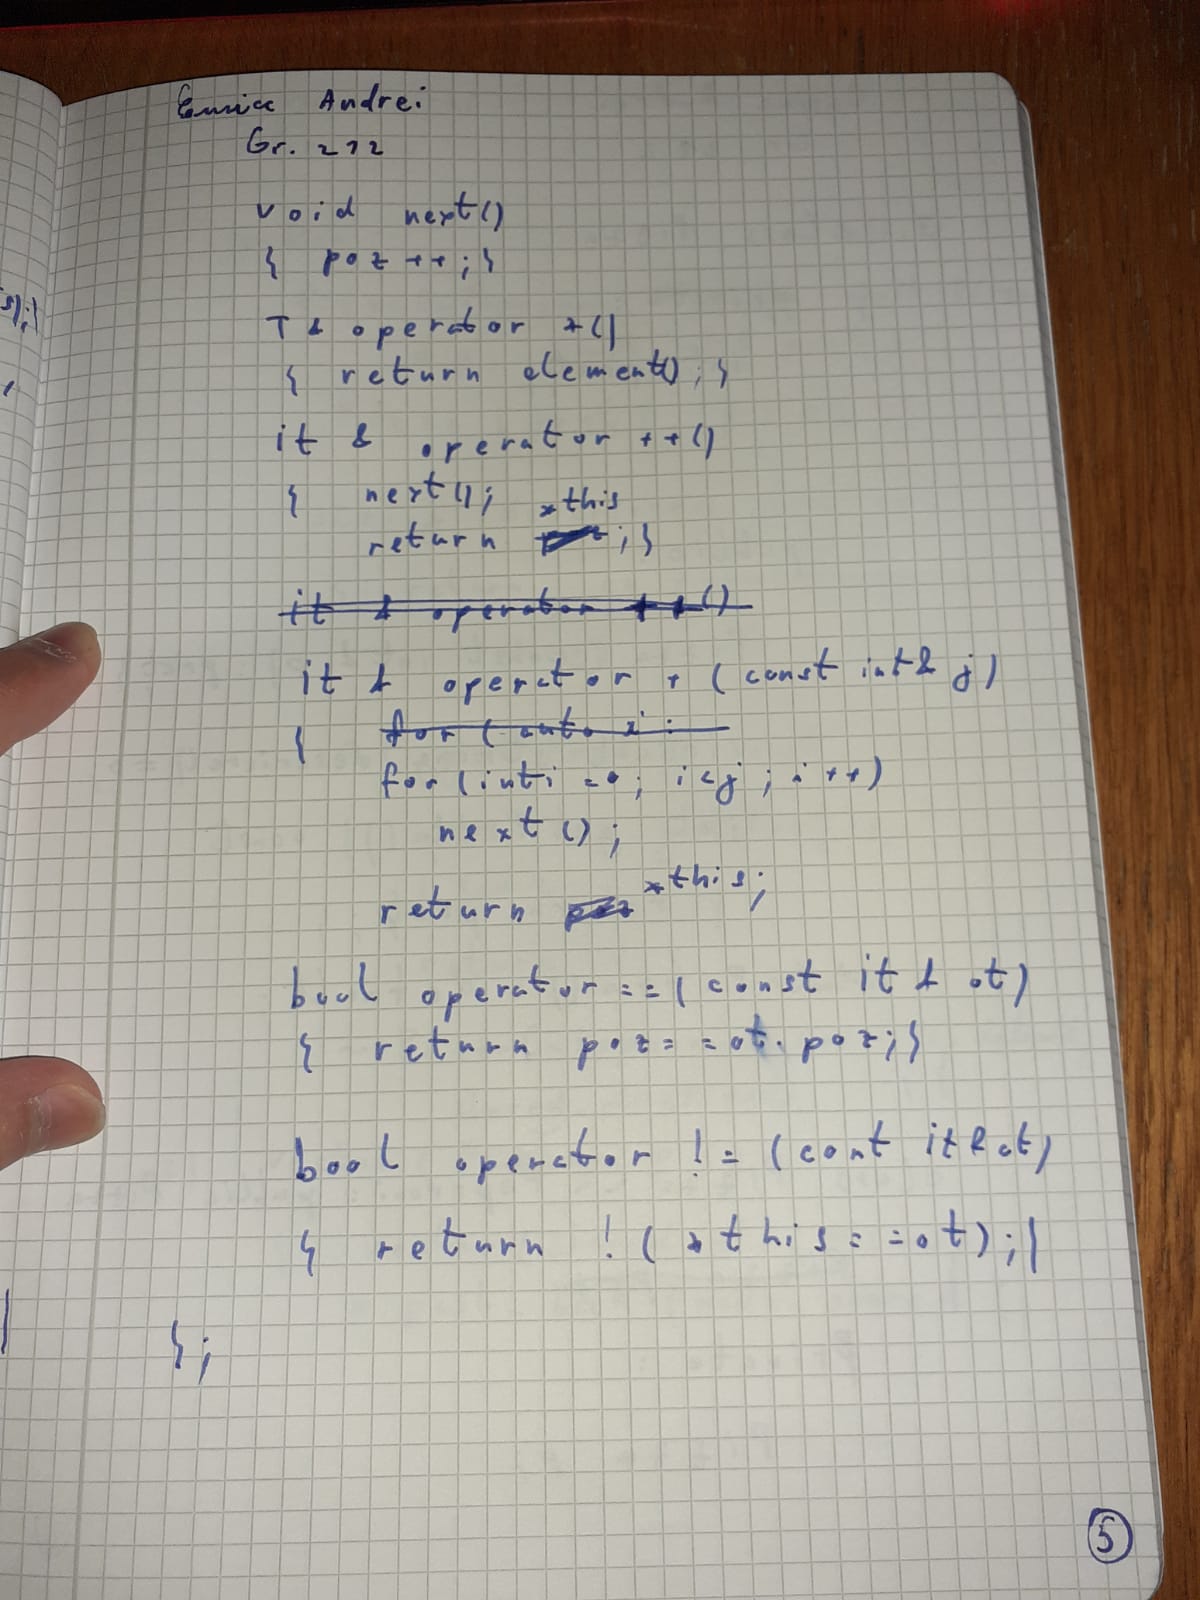 Andrei
Gr. 212
s);}
void next()
{ poz ++;}
T & operator *()
{ return element(); }
it & operator ++()
{ next();
return *this ;}
it & operator ++()
it & operator + (const int& j)
{ for ( auto x :
for (int i =0; i<j ; i ++)
next();
return *this;
bool operator ==( const it & ot)
{ return poz= =ot. poz;}
bool operator != (cont it & ot)
{ return !( *this= =ot);}
};
5